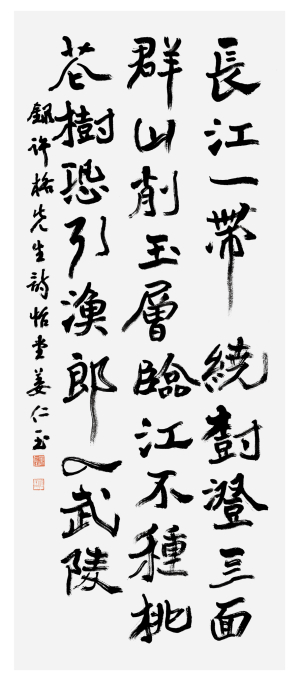 長江一帶繞樹澄三面
群山削玉層臨江不種桃
花樹恐引漁郎入武陵
錄許格先生詩怡堂姜仁玉